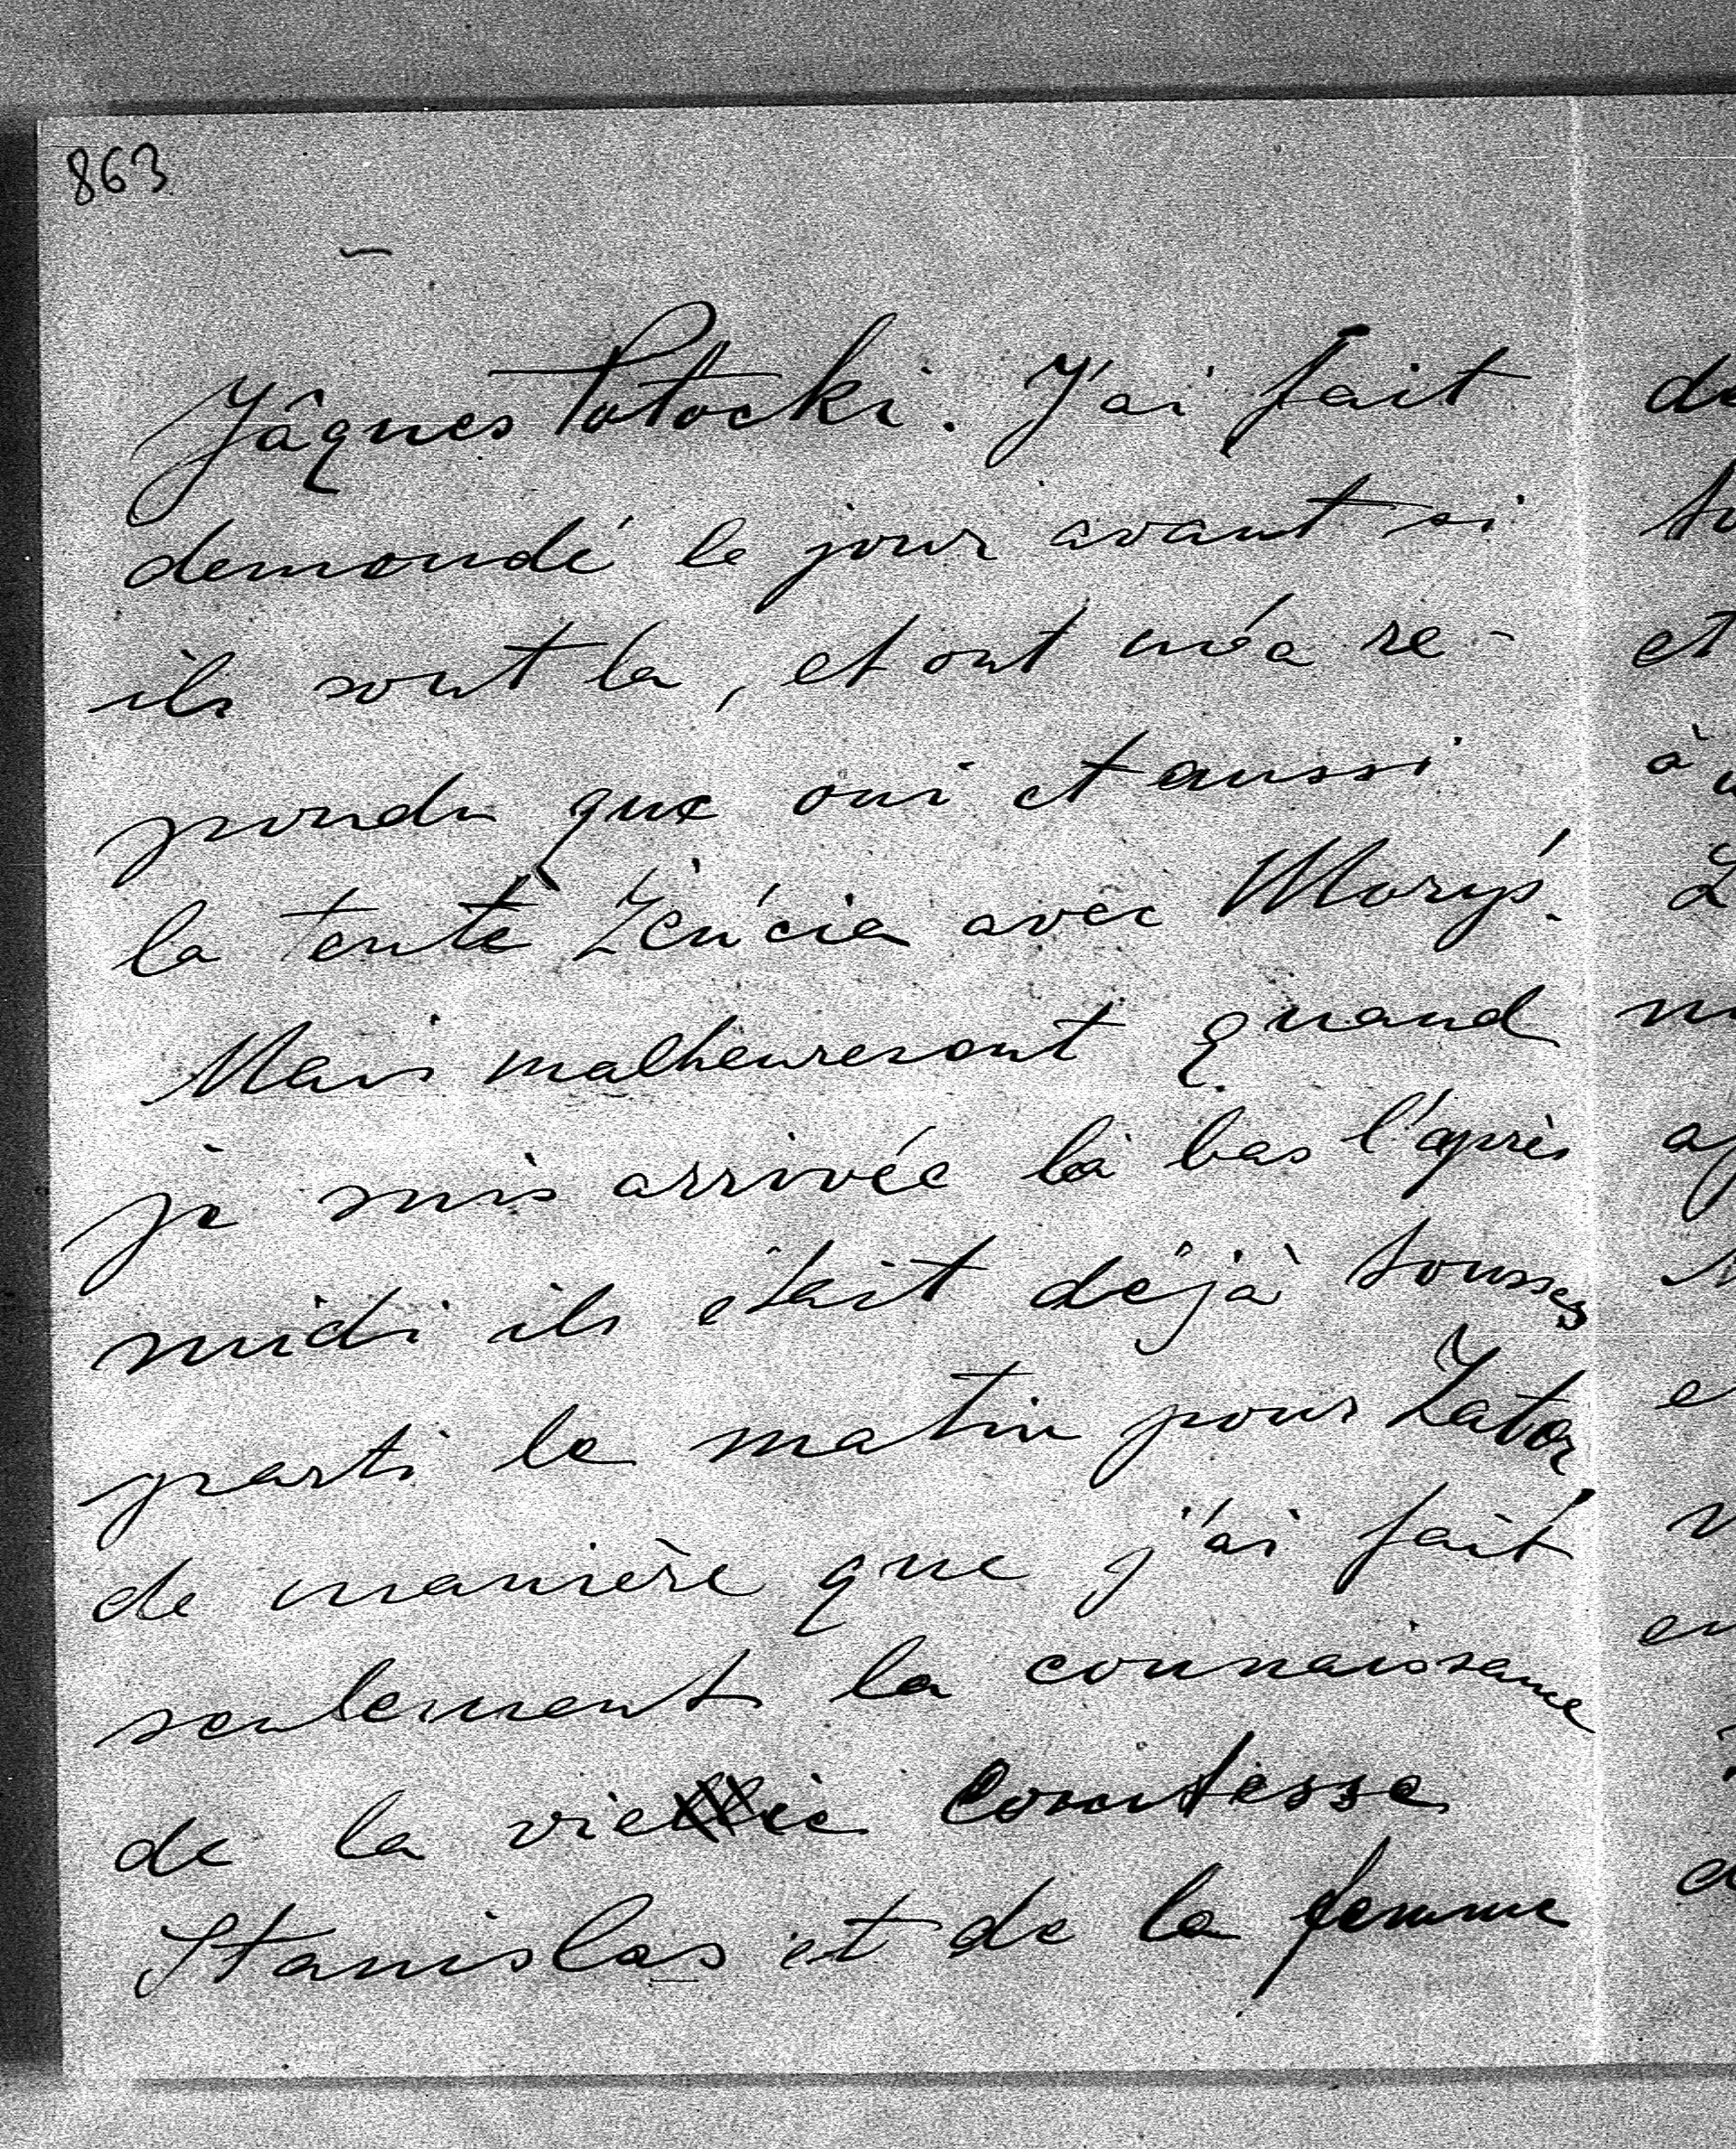 863
Jâques Potocki. J'ai fait
demandé le jour avant si
ils sont la, et ont m'a re-
pondu que oui et aussi
la tente Zéńcia avec Moryś.
Mais malheuresont quand
je suis arrivée là bas l'après
midi ils etait déjà tousses
parti le matin pour Zator
de manière que j'ai fait
seulement la connaissance
de la vieie Comtesse
Stanislas et de la femme